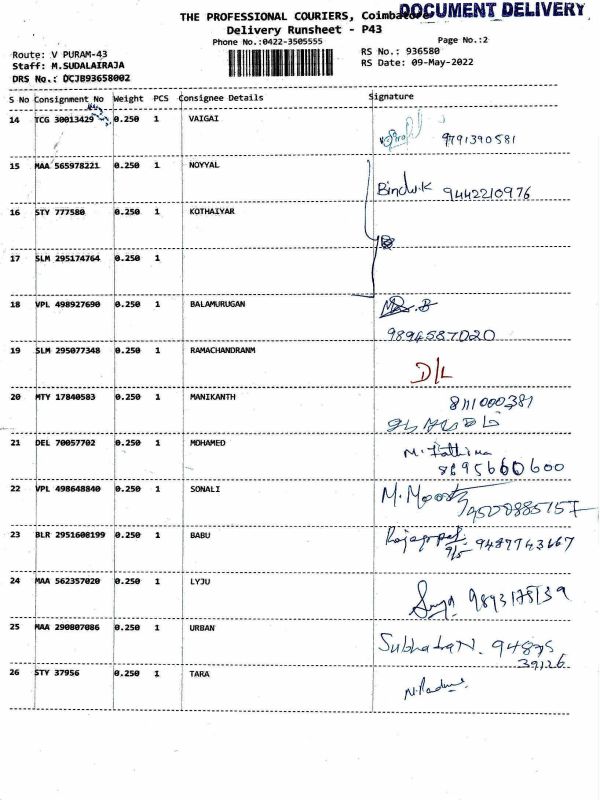 THE PROFESSIONAL COURIERS, Coimbatore
DOCUMENT DELIVERY
Delivery Runsheet - P43
Phone No.:0422-3505555
Page No.:2
Route: V PURAM-43
RS No.: 936580
Staff: M.SUDALAIRAJA
RS Date: 09-May-2022
DRS No.: DCJB93658002
S No Consignment No Weight PCS Consignee Details Signature
14 TCG 30013429 0.250 1 VAIGAI
9791390581
15 MAA 565978221 0.250 1 NOYYAL
Bindu.K 9442210976
16 STY 777580 0.250 1 KOTHAIYAR
17 SLM 295174764 0.250 1
18 VPL 498927690 0.250 1 BALAMURUGAN
9894587020
19 SLM 295077348 0.250 1 RAMACHANDRANM
D/L
20 MTY 17840583 0.250 1 MANIKANTH
8111000381
21 DEL 70057702 0.250 1 MOHAMED
M. Fathima
8695660600
22 VPL 498648840 0.250 1 SONALI
23 BLR 2951608199 0.250 1 BABU
Rajagopal
9/5 9487743667
24 MAA 562357020 0.250 1 LYJU
25 MAA 290807086 0.250 1 URBAN
Subhadra N. 94875
39126
26 STY 37956 0.250 1 TARA